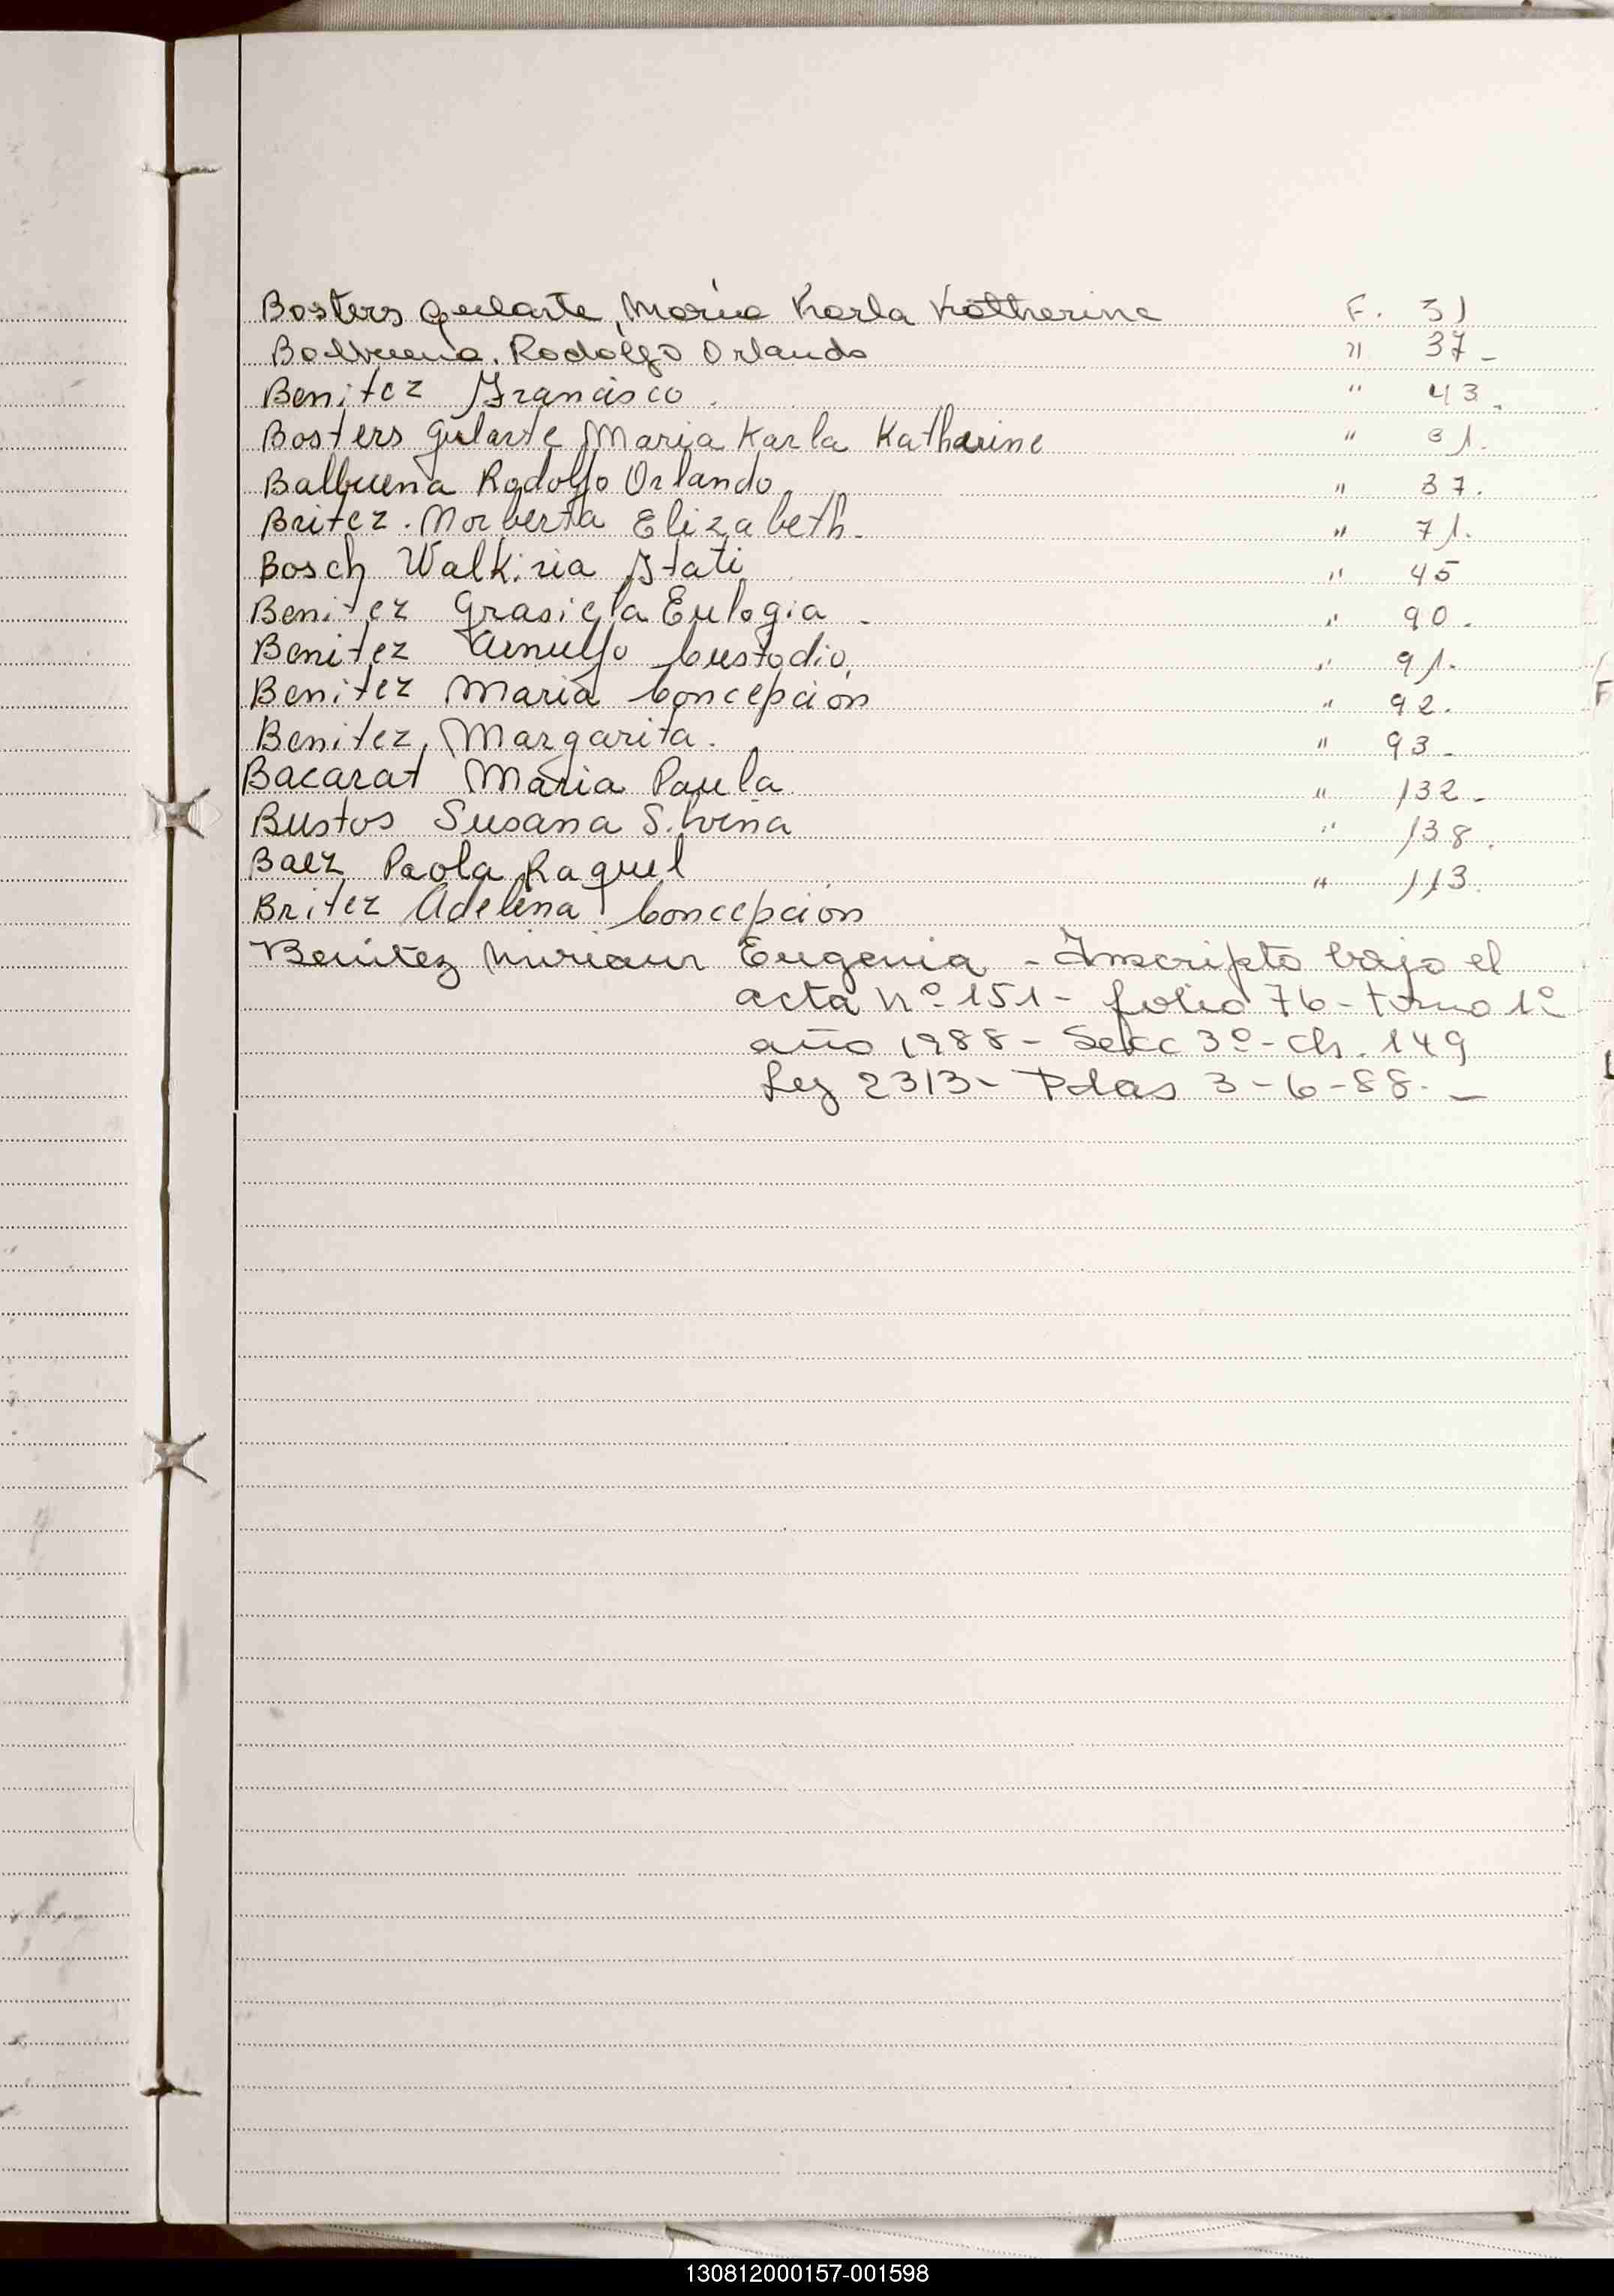 Bosters Gularte, María Karla Katherine F. 31
Balbuena. Rodolfo Orlando " 37 -
Benitez Francisco. " 43.
Bosters Gularte Maria Karla Katharine " 31.
Balbuena Rodolfo Orlando " 37.
Britez. Norberta Elizabeth. " 71.
Bosch Walkiria Itati " 45
Benitez Grasiela Eulogia - " 90.
Benitez Arnulfo Custodio. " 91.
Benitez Maria Concepción " 92.
Benitez, Margarita. " 93 -
Bacarat Maria Paula " 132 -
Bustos Susana Silvina " 138.
Baez Paola Raquel " 113.
Britez Adelina Concepción
Benítez Miriam Eugenia - Inscripto bajo el
acta Nº 151 - folio 76 - tomo 1º
año 1988 - Secc 3º - Ch. 149
Ley 2313 - Pdas 3-6-88. -
130812000157-001598